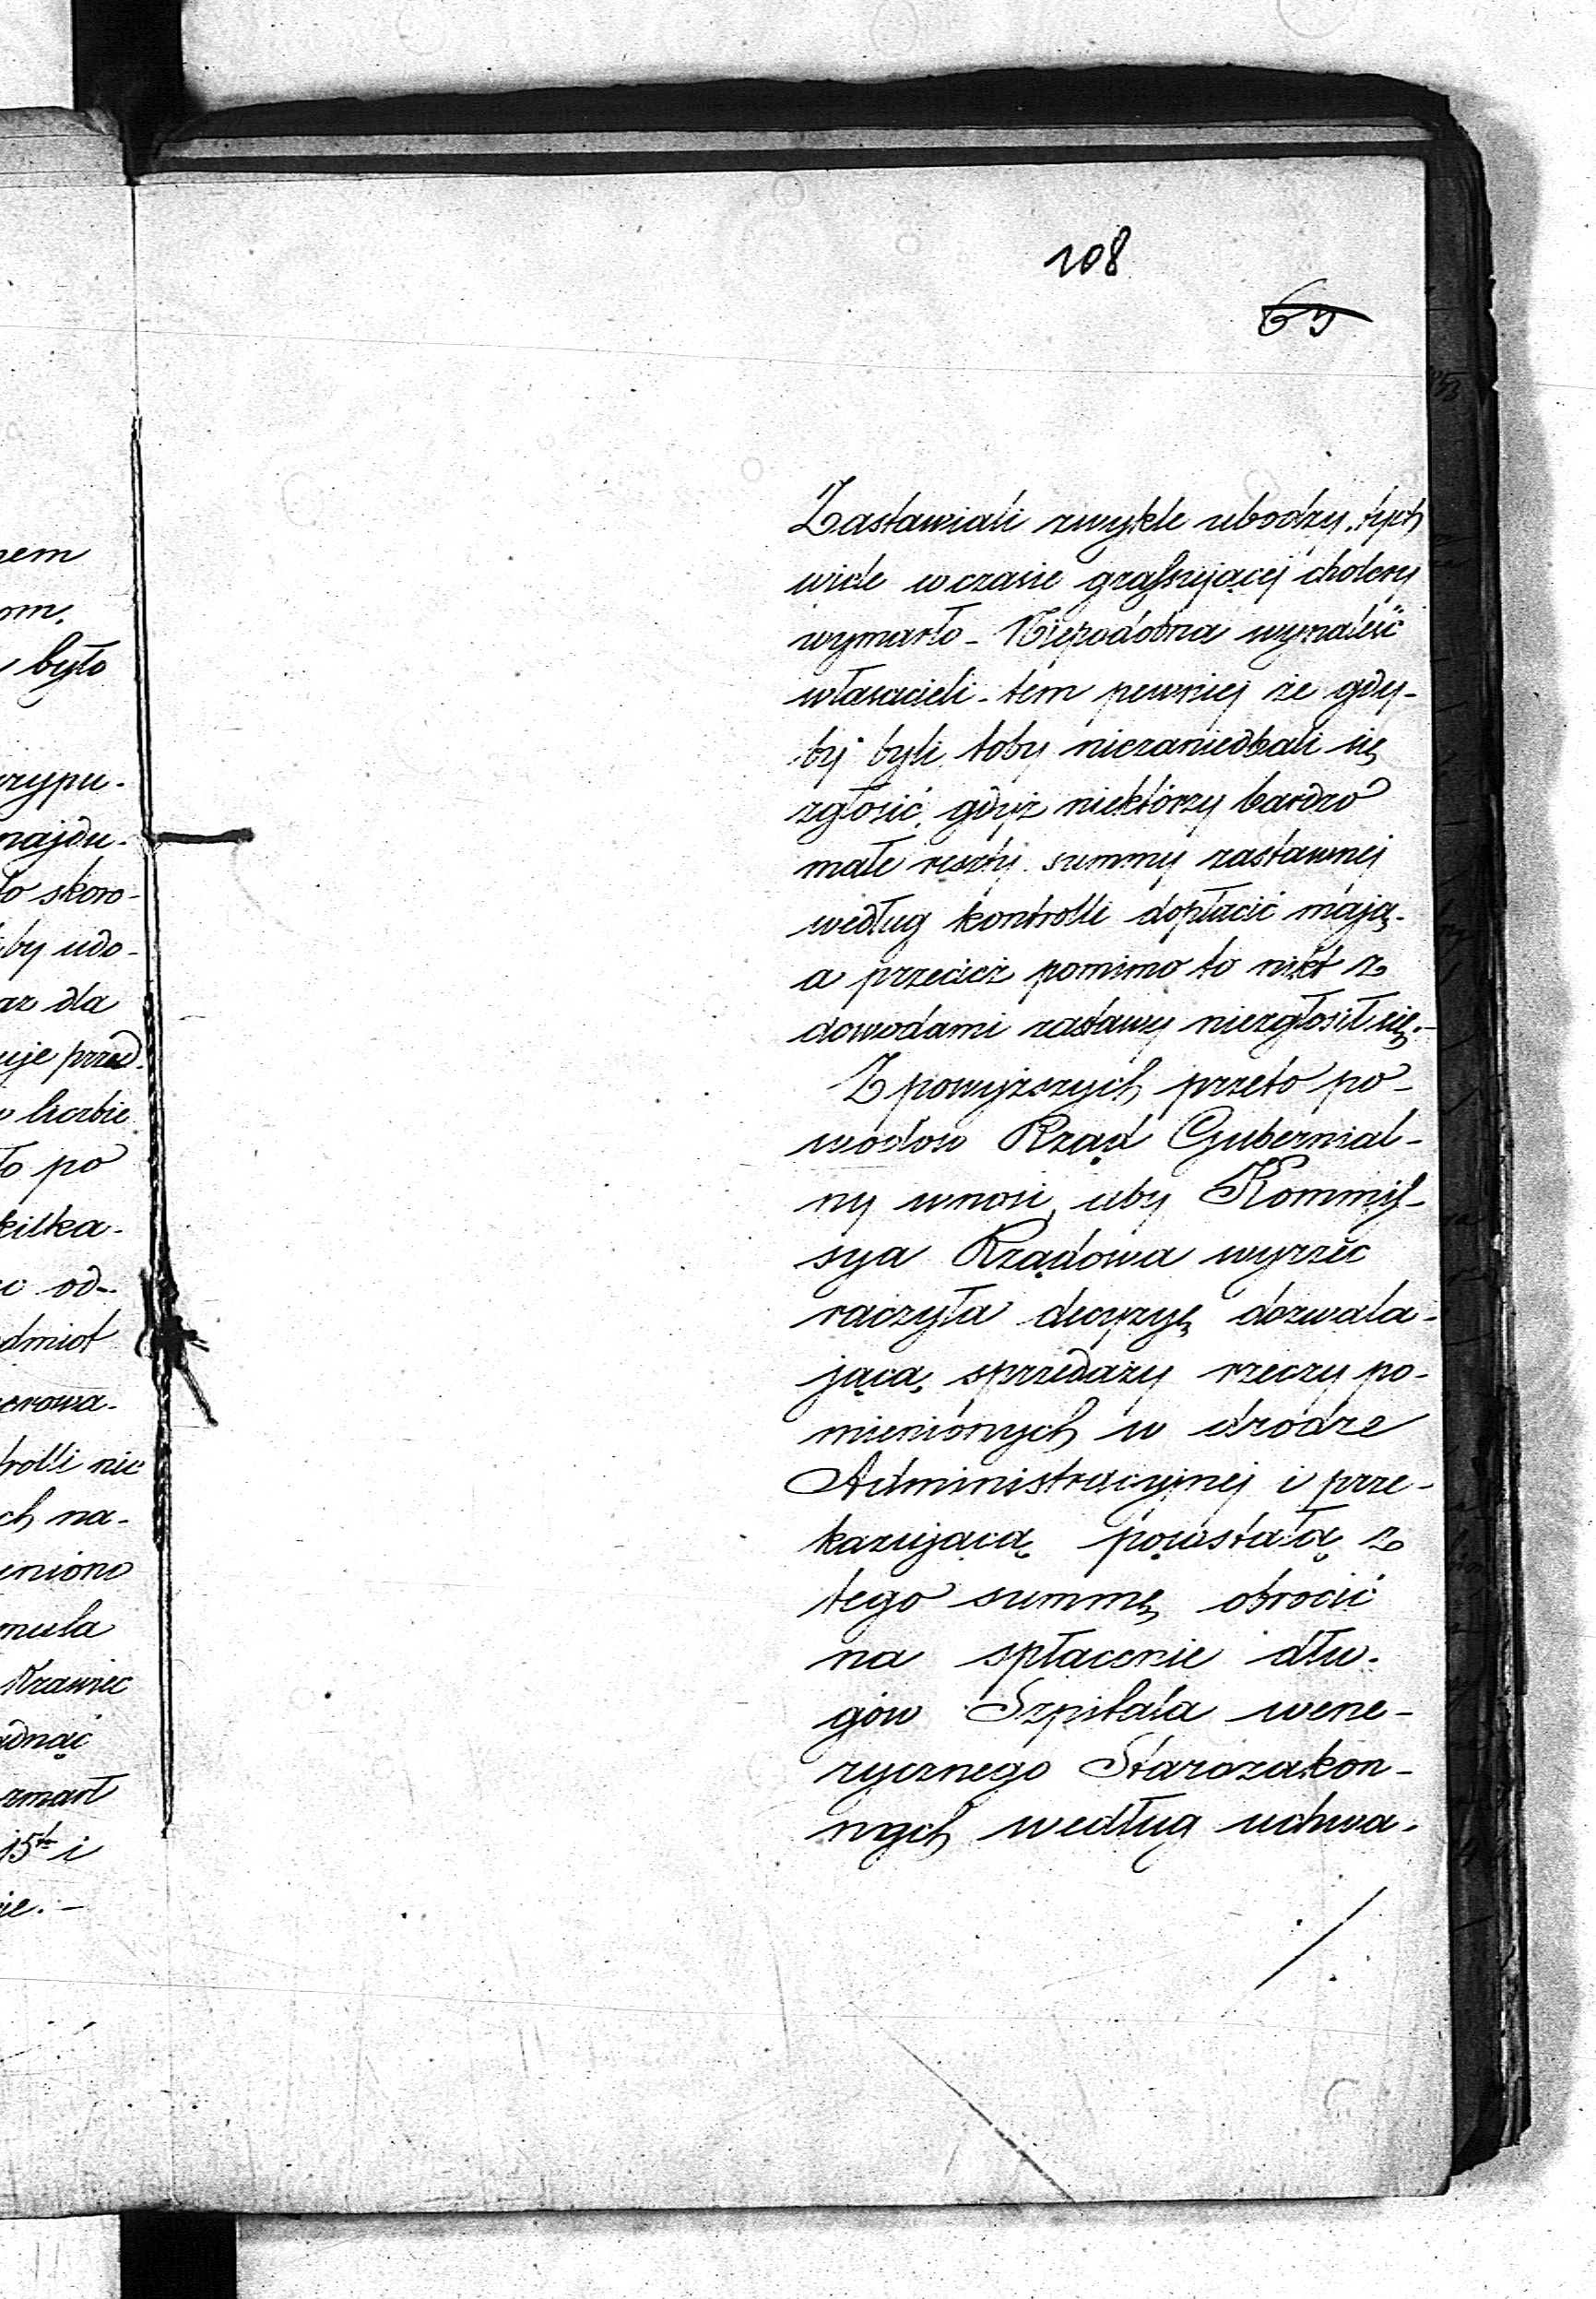 108
65
Zastawiali zwykle ubodzy, tych
wiele w czasie grassującej cholery
wymarło – Niepodobna wynaleść
właścicieli – tem pewniej że gdy-
by byli toby niezaniedbali się
zgłosić, gdyż niektórzy bardzo
małe reszty summy zastawnej
według kontrolli dopłacić mają.
a przecież pomimo to nikt z
dowodami zastawy niezgłosił się. –
Z powyższych przeto po-
wodow Rząd Gubernial-
ny wnosi, aby Kommis-
sya Rządowa wyrzec
raczyła decyzyę dozwala-
jącą sprzedaży rzeczy po-
mienionych w drodze
Administracyjnej i prze-
kazującą powstałą z
tego summę obrocić
na spłacenie dłu-
gów Szpitala wene-
rycznego Starozakon-
nych według uchwa-
./.
nem
om,
było
rzypu-
najdu-
to skoro-
by udo-
az dla
uje przed-
w liczbie
to po
kilka-
od-
dmiot
erowa-
rolli nie
ch na-
eniono
mula
Krawiec
adnąć
zmarł
15to i
ie. –